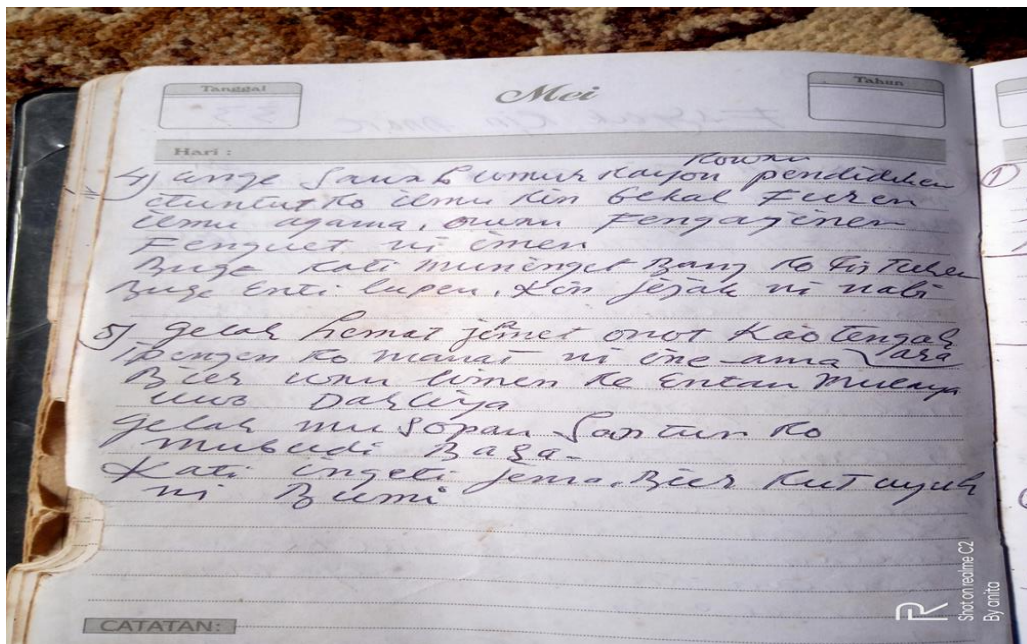 Tanggal
Mei
Tahun
Hari :
4) ange sara umur kayon pendidiken
ituntut ko ilmu kin bekal Furen
ilmu agama, Fengajinen
Fenguet ni imen
Buge kati munenget Bang ko
Buge Enti lupen, kin jejak ni nabi
5) gelah hemat jemet onot kao tengah ara
ipengen ko manat ni ine-ama
Bier umen ko Entan
uwo
gelah mu Sopan Santun ko
mubudi Basa-
Kati ingeti jema. Bier kutuyuh
ni Bumi
CATATAN:
Shot on realme C2
By anita